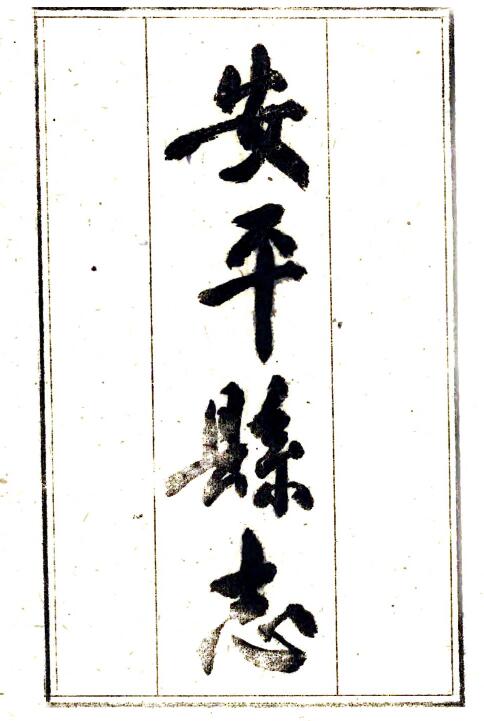 安平縣志